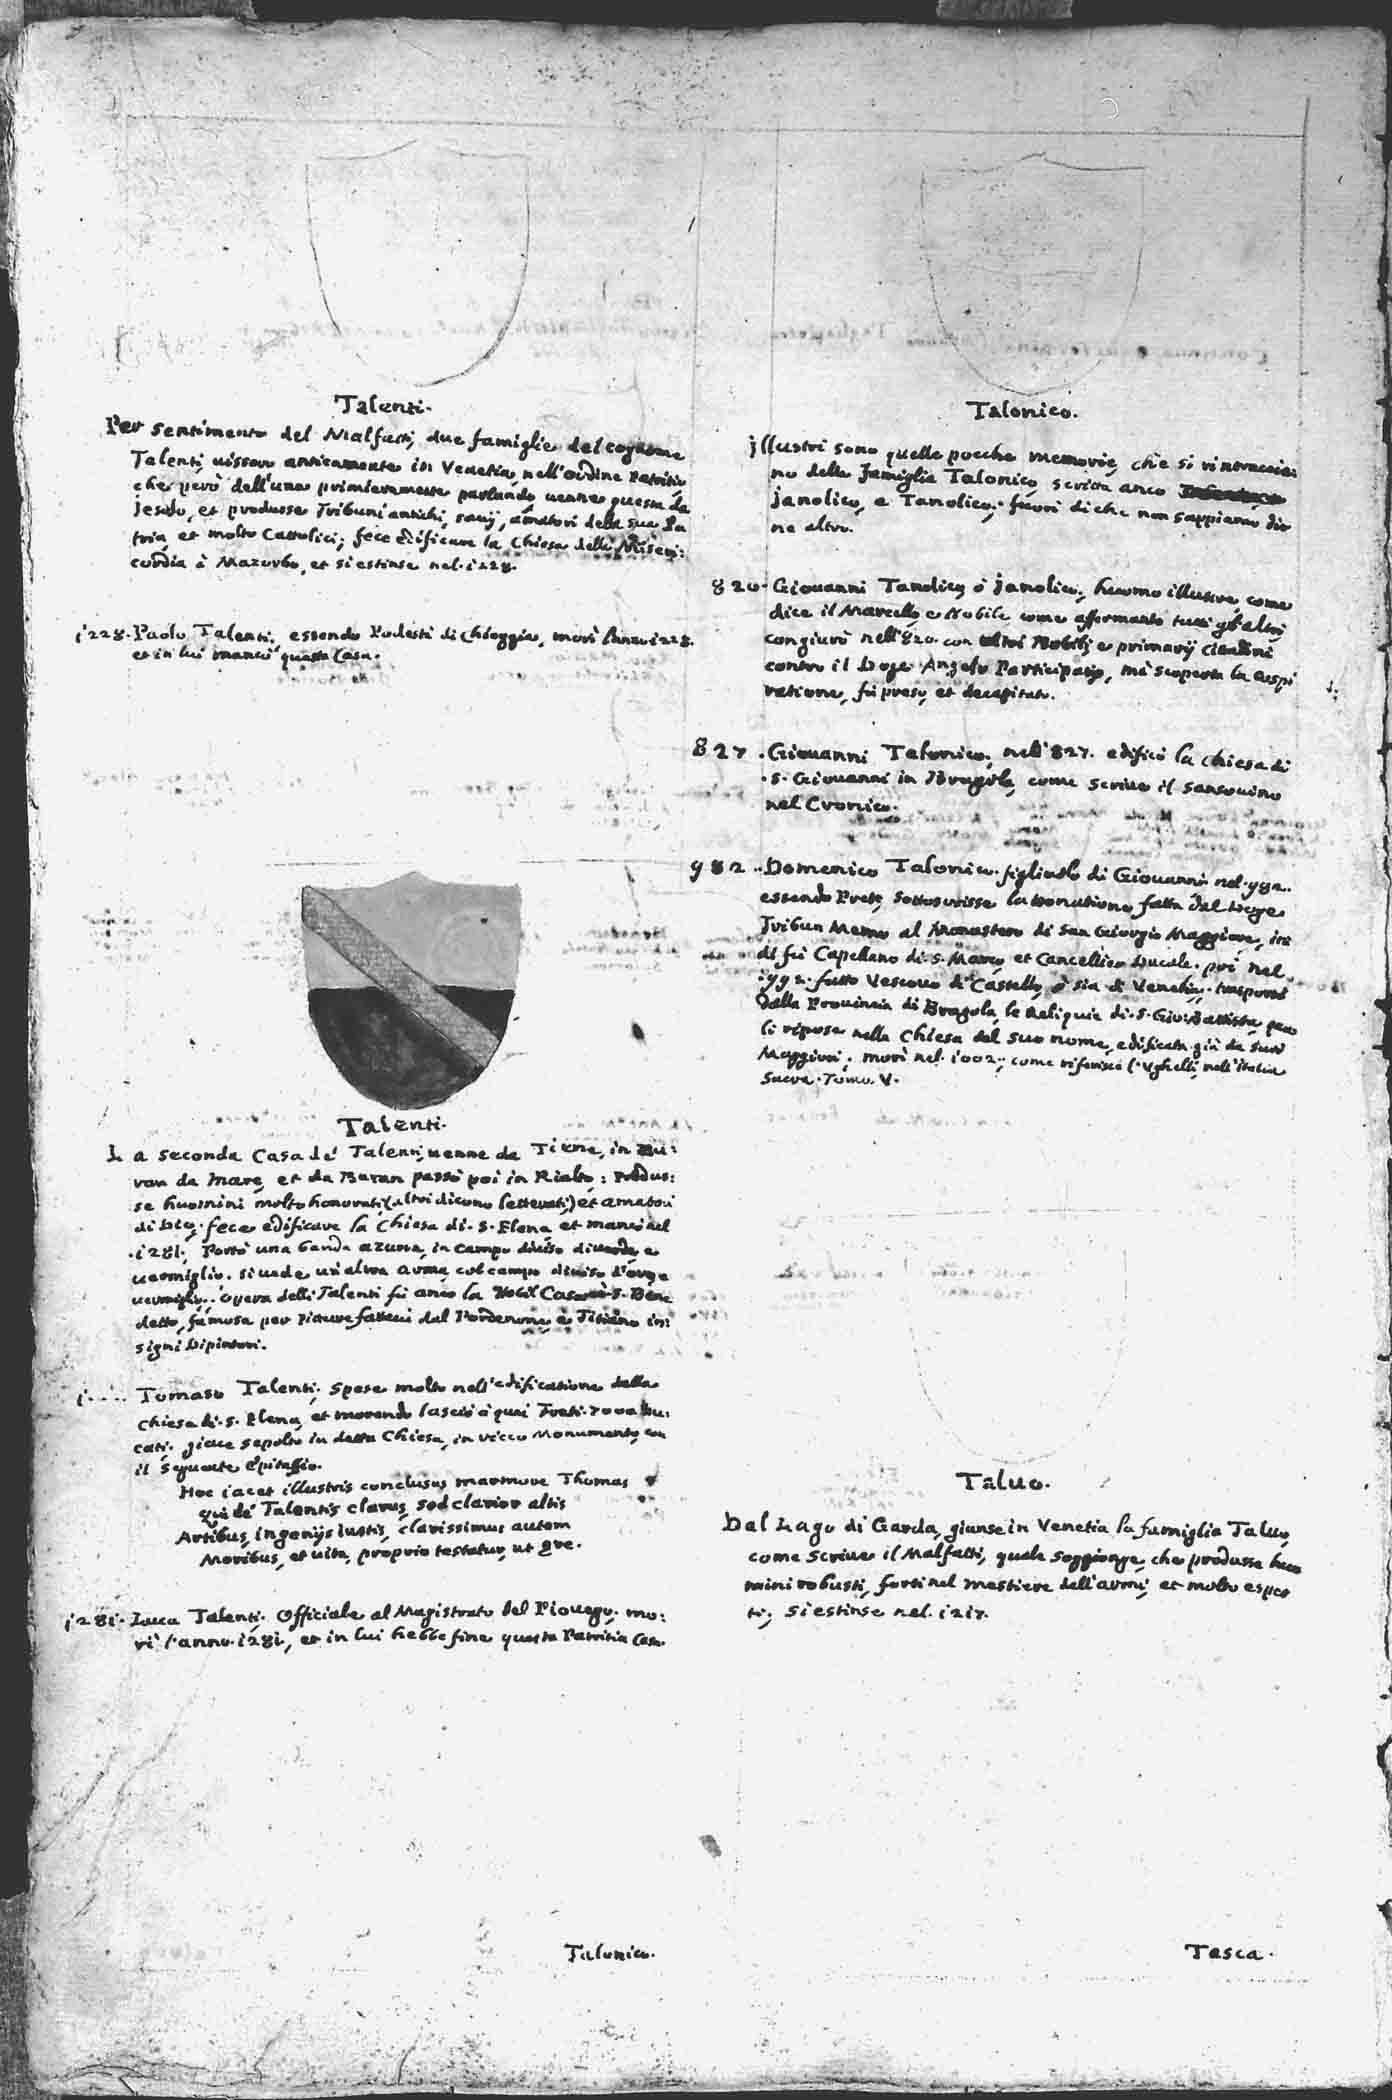 Talenti.
Per sentimento del Malfatti, due famiglie del cognome
Talenti, uissero anticamente in Venetia, nell'ordine Patritio
che però dell'una primieramente parlando, uenne questa da
Jesolo, et produsse Tribuni antichi, sauij, amatori della sua Pa
tria, et molto Cattolici; fece edificare la Chiesa della Miseri:
cordia à Mazorbo, et si estinse nel. 1228.
1228. Paolo Talenti, essendo Podestà di Chioggia, morì l'anno 1228.
et in lui mancò questa Casa.
Talenti.
La seconda Casa de' Talenti, uenne da Tiene, in Bu:
ran da Mare, et da Buran passò poi in Rialto; Produs:
se huomini molto honorati, (altri dicono letterati,) et amatori
di Dio. fece edificare la Chiesa di. S. Elena, et mancò nel
.1281. Portò una banda azura, in campo diuiso di uerde, e
uermiglio. si uede un'altra arma, col campo diuiso d'oro, e
uermiglio. Opera delli Talenti fù anco la Nobil Casa à S. Bene
detto, famosa per Pitture fatteui dal Pordenone, e Titiano in:
signi Dipintori.
1.... Tomaso Talenti, spese molto nell'edificatione della
Chiesa di. S. Elena, et morendo lasciò à quei Frati. 7000 Du:
cati. giace sepolto in detta Chiesa, in ricco Monumento, con
il seguente Epitaffio.
Hoc iacet illustris conclusus marmore Thomas
qui de Talentis clarus, sed clarior altis
Artibus, ingenijs iustis, clarissimus autem
Moribus, et uita, proprio testatur, ut ere.
1281. Luca Talenti, Officiale al Magistrato del Piouego, mo:
rì l'anno. 1281, et in lui hebbe fine questa Patritia Casa.
Talonico.
Talonico.
Illustri sono quelle poche memorie, che si rintraccia:
no della famiglia Talonico, scritta anco
Janolico, e Tanolico; fuori di che non sappiamo dir
ne altro.
820. Giouanni Tanolico, ò Janolico, huomo illustre, come
dice il Marcello e Nobile come affermano tutti gl'altri
congiurò nell'820. con altri Nobili, e primarij cittadini
contro il Doge Angelo Participatio, mà scoperta la cospi
ratione, fù preso, et decapitato.
827. Giouanni Talonico, nell'827. edificò la Chiesa di
.S. Giouanni in Bragola, come scriue il Sansouino
nel Cronico.
982. Domenico Talonico figliuolo di Giouanni nel. 982.
essendo Prete, sottoscrisse la donatione fatta dal Doge
Tribun Memo al Monastero di San Giorgio Maggiore, in
di fù Capellano di. S. Marco, et Cancellier Ducale. poi nel
.992. fatto Vescouo di Castello, ò sia di Venetia. trasportò
dalla Prouincia di Bragola, le Reliquie di. S. Gio: Battista, qua
li ripose nella Chiesa del suo nome, edificata già da suoi
Maggiori. morì nel. 1002; come riferisce l'Vghelli, nell'Italia
Sacra. Tomo. V.
Taluo.
Dal Lago di Garda, giunse in Venetia la famiglia Taluo,
come scriue il Malfatti, quale soggionge, che produsse huo
mini robusti, forti nel mestiere dell'armi, et molto esper
ti; si estinse nel. 1217.
Tasca.